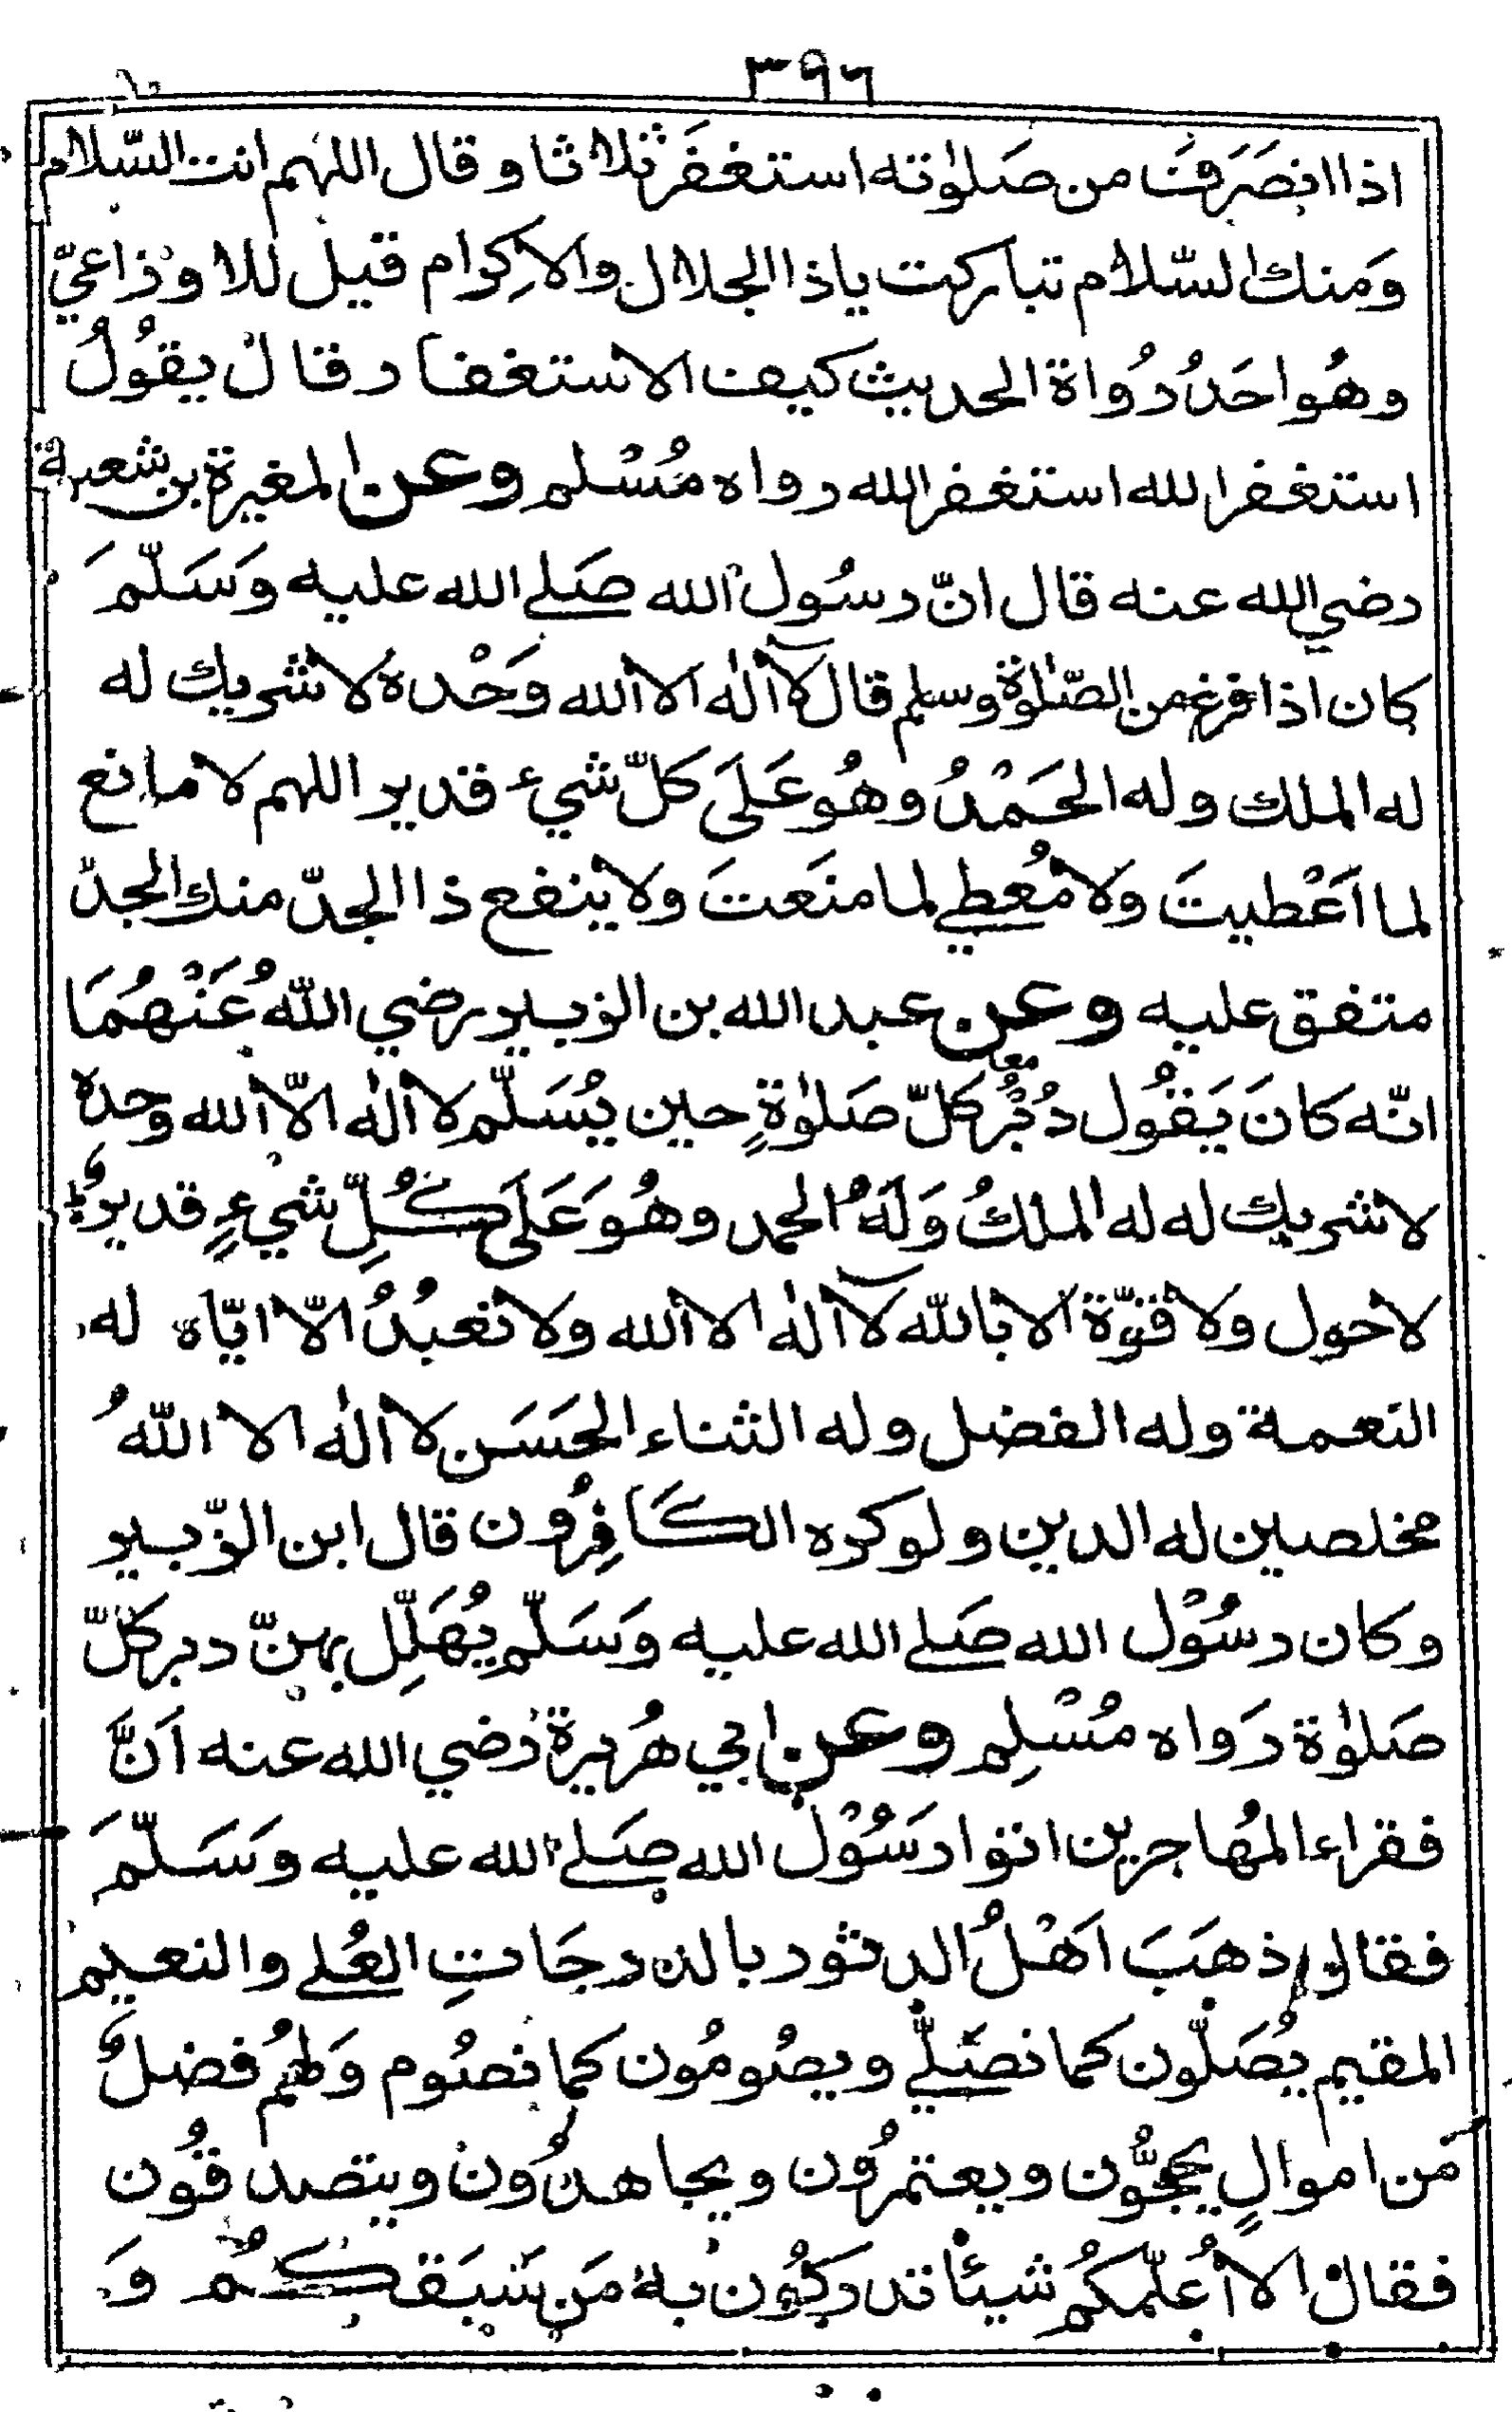 ٣٩٦
اذا انصَرَفَ من صَلٰوته استغفَرَ ثلاثا وقال اللهم انت السّلام
وَمنك السّلام تباركت ياذا الجلال والاكِرام قيل للاوزاعيّ
وهُو احَدُ رُواة الحديث كيف الاستغفار قال يقُولُ
استغفر الله استغفر الله رواه مُسْلم وعن المغيرة بن شعبة
رضي الله عنه قال انّ رسُول الله صَلے الله عليه وَسَلّمَ
كان اذا فرغ من الصّلٰوة وسلم قال لآ الٰه الا الله وَحْدهُ لا شريك له
له الملك وله الحَمْدُ وهُو عَلَى كلّ شيء قدير اللهم لا مانع
لما اَعْطيتَ ولا مُعطي لما منَعتَ ولا ينفع ذا الجدّ منك الجدّ
متفق عليه وعن عبد الله بن الزبير رضي اللّٰه عَنْهُمَا
انّه كانَ يَقُول دُبُرَ كلّ صَلٰوةٍ حين يُسَلّم لا الٰه الّا الله وحده
لا شريك له له الملكُ وَلَهُ الحمد وهُوَ عَلَى كُلِّ شيءٍ قديرٌ
لا حول ولا قوّة الا باللّه لآ الٰه الا الله ولا نعبُدُ الّا ايّاه له
النعمة وله الفضل وله الثناء الحَسَن لا الٰه الا اللّهُ
مخلصين له الدين ولو كره الكَافِرُون قال ابن الزّبير
وكان رسُوْل الله صَلے الله عليه وَسَلّم يُهَلِّل بهنّ دبر كلّ
صَلٰوة رَواه مُسْلِم وعن ابي هُريرة رَضي الله عنه اَنَّ
فقراء المهُاجرين اتوا رسَُوْل الله صَلے الله عليه وَسَلّمَ
فقالوا ذهَبَ اهْلُ الدثور بالدرجَاتِ العُلے والنعيم
المقيم يُصَلّون كما نصَلّے ويصُومُون كما نصُوم وَلهُم فضلٌ
مّن اموالٍ يحجُّون ويعتمرُون ويجاهدُون ويتصدقُون
فقال الا اُعلّمكُم شيئًا تدركُون به مَن سَبَقكُم وَ